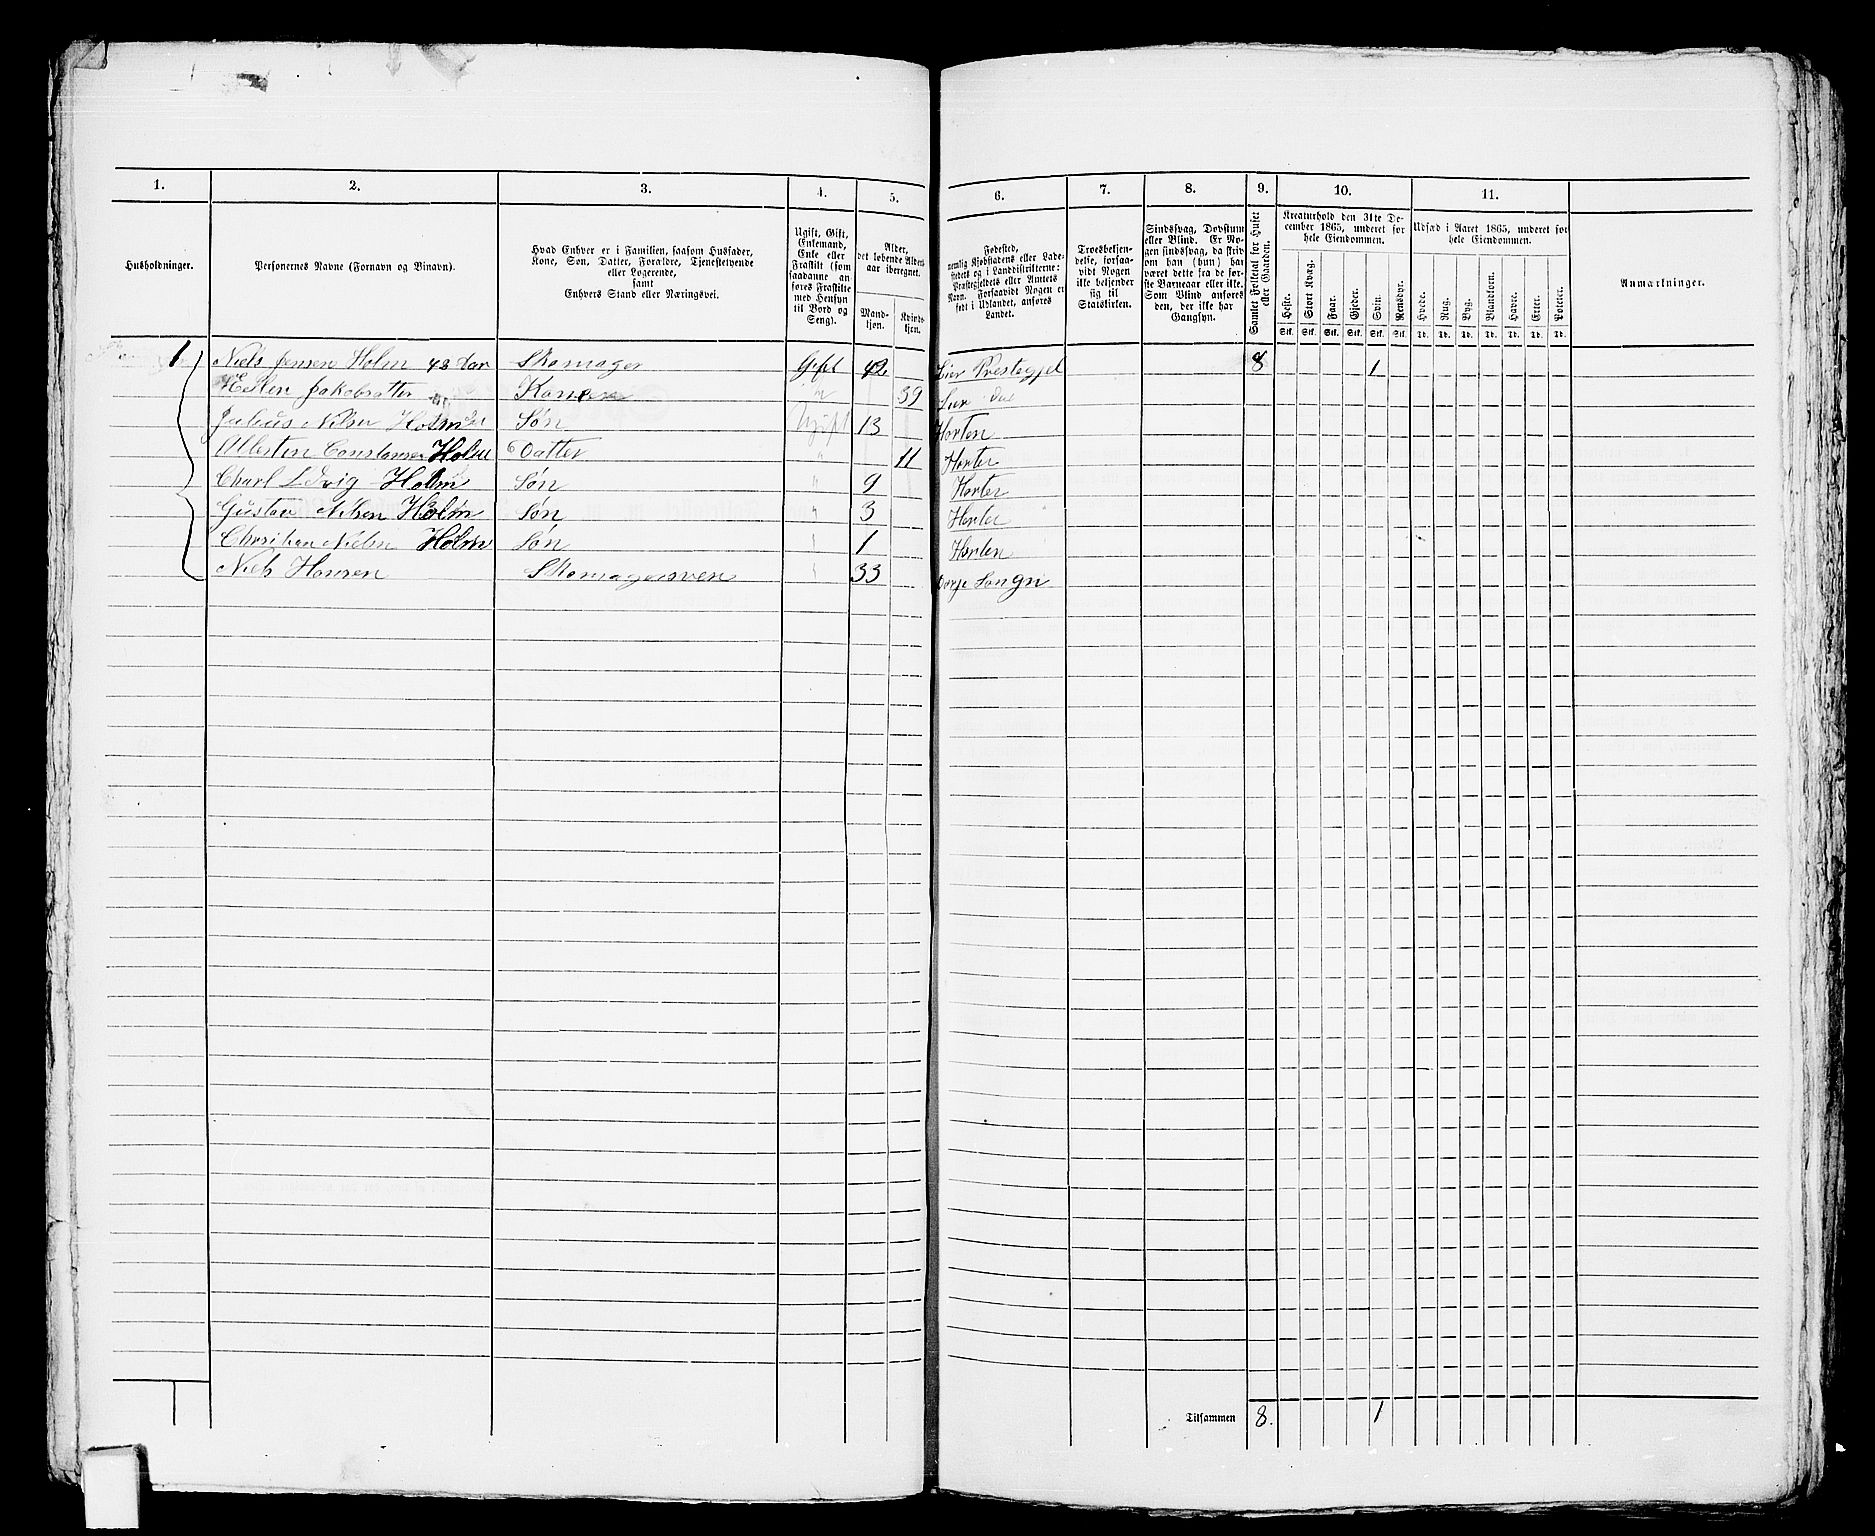 1. 2. 3. 4. 5. 6. 7. 8. 9. 10. 11.
Husholdninger.
Personernes Navne (Fornavn og Binavn).
Hvad Enhver er i Familien, saasom Husfader,
Kone, Søn, Datter, Forældre, Tjenestetyende
eller Logerende,
samt
Enhvers Stand eller Næringsvei.
Ugift, Gift,
Enkemand,
Enke eller
Fraskilt (som
saadanne an-
føres Fraskilte
med Hensyn
til Bord og
Seng).
Alder,
det løbende Alders-
aar iberegnet.
Mand-
kjøn.
Kvinde-
kjøn.
Fødested,
nemlig Kjøbstadens eller Lade-
stedets og i Landdistrikterne:
Præstegjeldets eller Amtets
Navn. Forsaavidt Nogen er
født i Udlandet, anføres
Landet.
Troesbekjen-
delse, forsaa-
vidt Nogen
ikke bekjender
sig til
Statskirken.
Sindssvag, Døvstum
eller Blind. Er No-
gen sindssvag, da skriv
om han (hun) har
været dette fra de før-
ste Barneaar eller ikke.
Som Blind anføres
den, der ikke har
Gangsyn.
Samlet Folketal for Huset
eller Gaarden.
Kreaturhold den 31te De-
cember 1865, underet for
hele Eiendommen.
Heste. Stort Kvæg. Faar. Gjeder. Svin. Rensdyr.
Stk. Stk. Stk. Stk. Stk. Stk.
Udsæd i Aaret 1865, underet for
hele Eiendommen.
Hvede. Rug. Byg. Blandkorn. Havre. Erter. Poteter.
Td. Td. Td. Td. Td. Td. Td.
Anmærkninger.
1 Niels Jensen Holm 43 Aar Skomager Gift 42 Lier Prestegjel 8 1
Eslen Jakobsatter Kone " 39 Lier
Julius Nilsen Holm Søn Ugift 13 Horten
Constanse Holm Datter " 11 Horten
Charl Ldvig Holm Søn " 9 Horten
Gustav Nilsen Holm Søn " 3 Horten
Christian Nielsn Holm Søn " 1 Horten
Niels Hansen Skomagersven " 33 Sangn
Tilsammen 8. 1